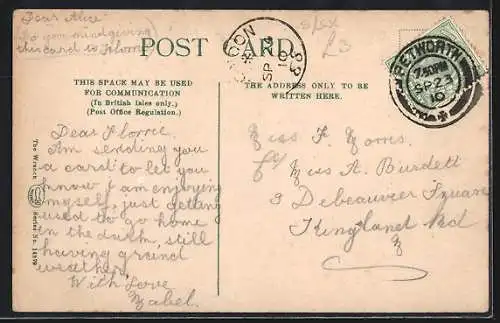 Dear Alice
Do you mind giving
this card to Florrie
POST CARD.
Spex
£3
LONDON
SP 24
10
33
PETWORTH
7.50 PM
SP 23
10
THIS SPACE MAY BE USED
FOR COMMUNICATION
(In British Isles only.)
(Post Office Regulation.)
THE ADDRESS ONLY TO BE
WRITTEN HERE.
The Wrench
Series No. 14879
Dear Florrie
Am sending you
a card to let you
know I am enjoying
myself, just getting
used to go home
in the dark, still
having grand
weather,
With Love
Mabel.
Miss F. Morris.
c/o Miss A. Burdett
3 Debeauvoir Square
Kingsland Rd
N